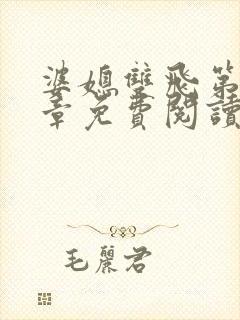 婆媳雙飛第
章免費閱讀
毛麗君